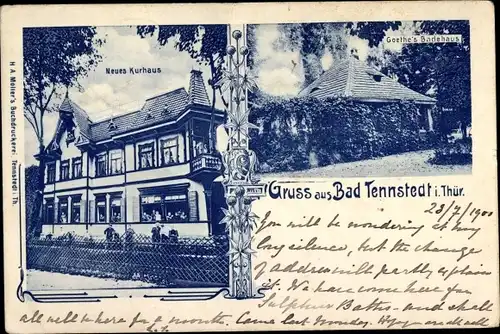 Neues Kurhaus
Goethe's Badehaus
H A Müller's Buchdruckerei, Tennstedt i. Th.
Gruss aus Bad Tennstedt i. Thür.
23/7/1900
You will be wondering at my
long silence, but the change
of address will partly explain
it. We have come here for
Sulphur Baths - and shall
all well be here for a month. Came last Monday.